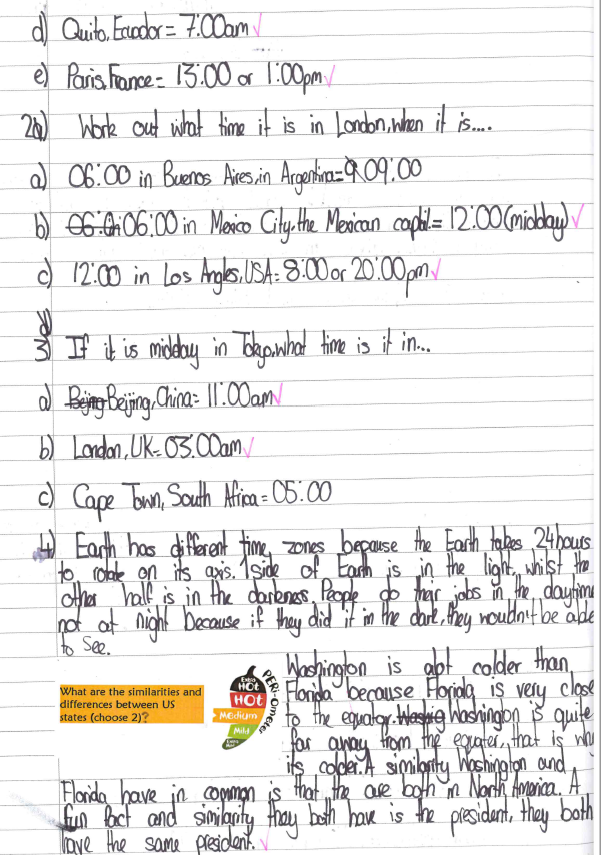 d) Quito, Ecuador = 7:00am
e) Paris, France = 13:00 or 1:00pm
2) Work out what time it is in London, when it is....
a) 06:00 in Buenos Aires, in Argentina = 09:00
b) 06:00 in Mexico City, the Mexican capital = 12:00 (midday)
c) 12:00 in Los Angles, USA = 8:00 or 20:00pm
d)
3) If it is midday in Tokyo, what time is it in...
a) Bejing Beijing, China = 11:00am
b) London, UK = 03:00am
c) Cape Town, South Africa = 05:00
4) Earth has different time zones because the Earth takes 24 hours
to rotate on its axis. 1 side of Earth is in the light, whilst the
other half is in the darkness. People do their jobs in the daytime
not at night because if they did it in the dark, they wouldn't be able
to see.
What are the similarities and
differences between US
states (choose 2)?
PERi-Ometer
Extra
HOT
HOT
Medium
Mild
Extra
Mild
Washington is alot colder than
Florida because Florida is very close
to the equator. Washington is quite
far away from the equater, that is why
its colder. A similarity Washington and
Florida have in common is that the are both in North America. A
fun fact and similarity they both have is the president, they both
have the same president.